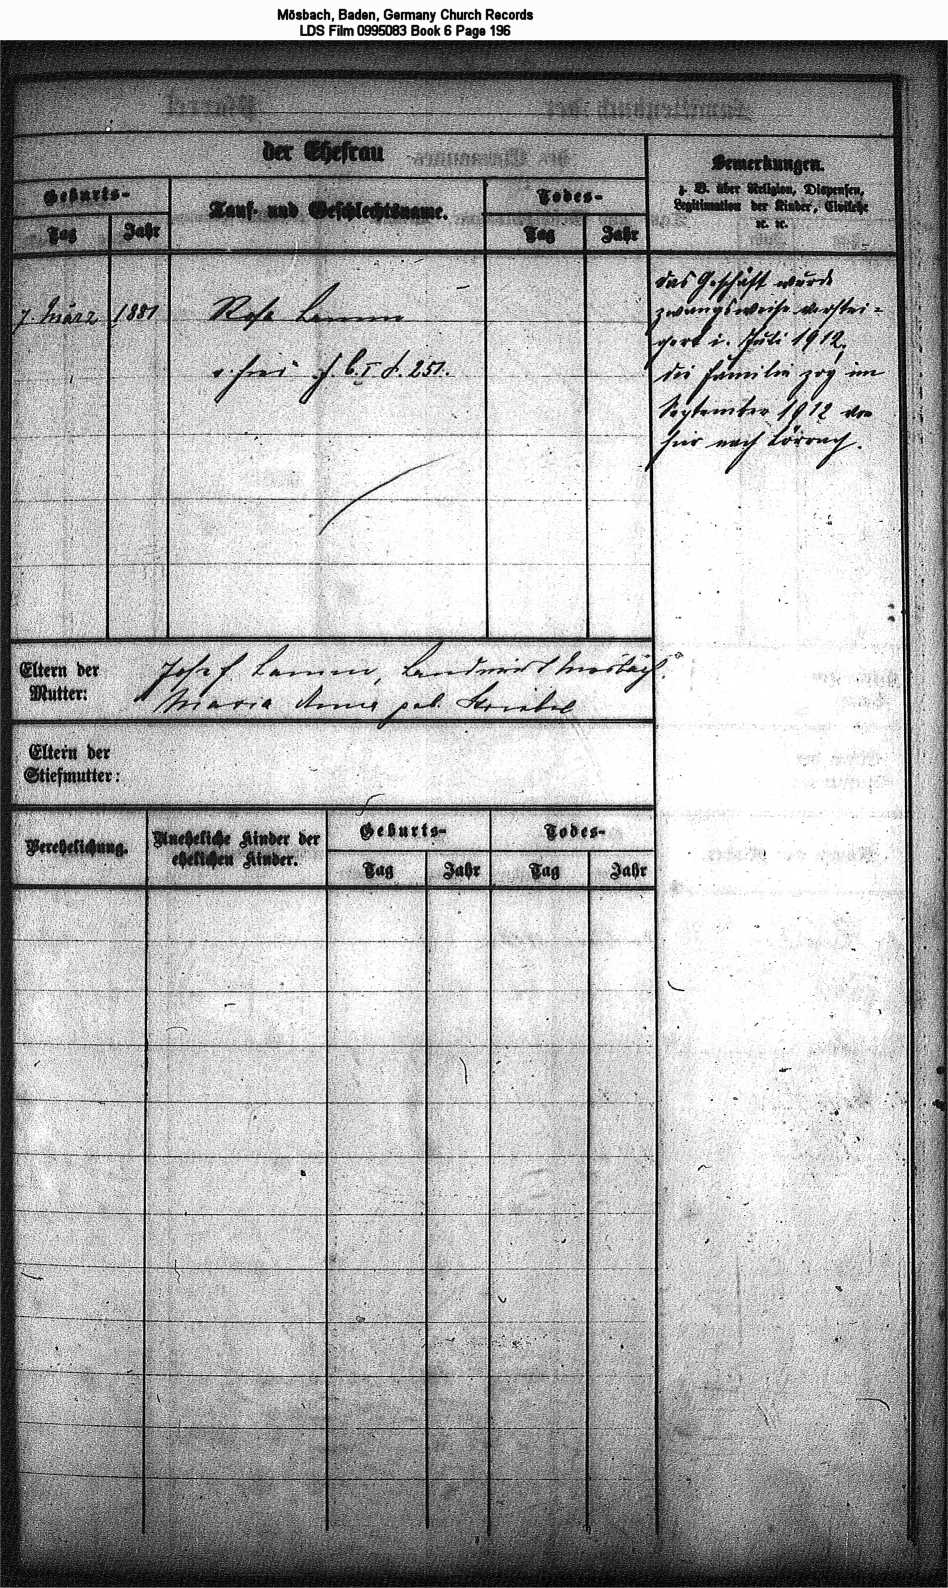 Mösbach, Baden, Germany Church Records
LDS Film 0995083 Book 6 Page 196
der Ehefrau
Bemerkungen.
z. B. über Religion, Dispensen,
Legitimation der Kinder, Civilehe
ꝛc. ꝛc.
Geburts-
Tauf- und Geschlechtsname.
Todes-
Tag
Jahr
Tag
Jahr
7. März 1881
Rosa Lamm
v. hier s. b. I S. 251.
das Geschäft wurde
zwangsweise verstei-
gert i. Juli 1912,
die Familie zog im
September 1912 von
hier nach Lörrach.
Eltern der
Mutter:
Josef Lamm, Landwirt Mösbach.
Maria Anna geb.
Eltern der
Stiefmutter:
Verehelichung.
Uneheliche Kinder der
ehelichen Kinder.
Geburts-
Todes-
Tag
Jahr
Tag
Jahr